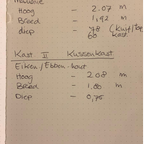 Hoog - 2.07 m
Breed - 1,92 m
diep - 78
60 kast.
Kast II Kussenkast
Eiken/Ebben-hout
Hoog - 2.08 m
Breed - 1,80 m
Diep - 0,75